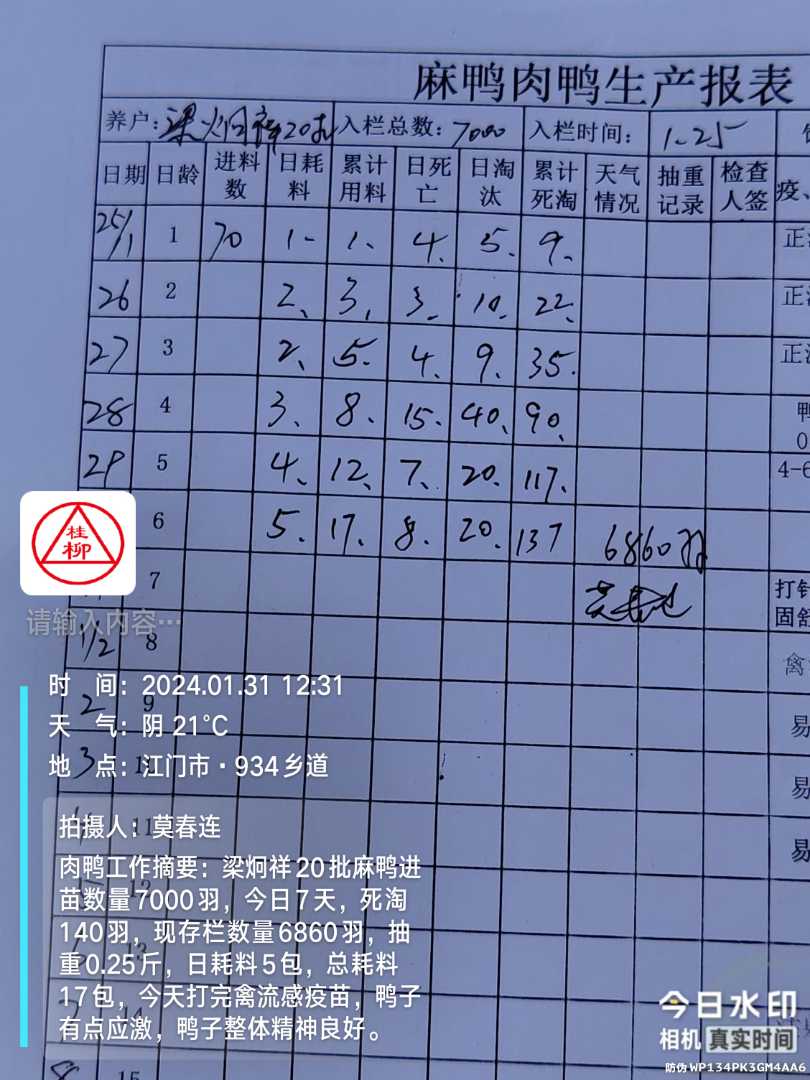 麻鸭肉鸭生产报表
养户: 梁炯祥20批 入栏总数: 7000 入栏时间: 1.25
日期 日龄 进料数 日耗料 累计用料 日死亡 日淘汰 累计死淘 天气情况 抽重记录 检查人签 疫、
25/1 1 70 1- 1、 4、 5、 9、 正
26 2 2、 3、 3、 10、 22、 正
27 3 2、 5、 4、 9、 35、 正
28 4 3、 8、 15、 40、 90、 鸭
0
29 5 4、 12、 7、 20、 117、 4-6
6 5、 17、 8、 20、 137 6860羽
7 莫春连 打针
固舒
1/2 8 禽
2 9 易
3 易
11 易
桂柳
请输入内容…
时 间: 2024.01.31 12:31
天 气: 阴 21℃
地 点: 江门市·934乡道
拍摄人: 莫春连
肉鸭工作摘要: 梁炯祥20批麻鸭进
苗数量7000羽，今日7天，死淘
140羽，现存栏数量6860羽，抽
重0.25斤，日耗料5包，总耗料
17包，今天打完禽流感疫苗，鸭子
有点应激，鸭子整体精神良好。
8 15
今日水印
相机 真实时间
防伪 WP134PK3GM4AA6